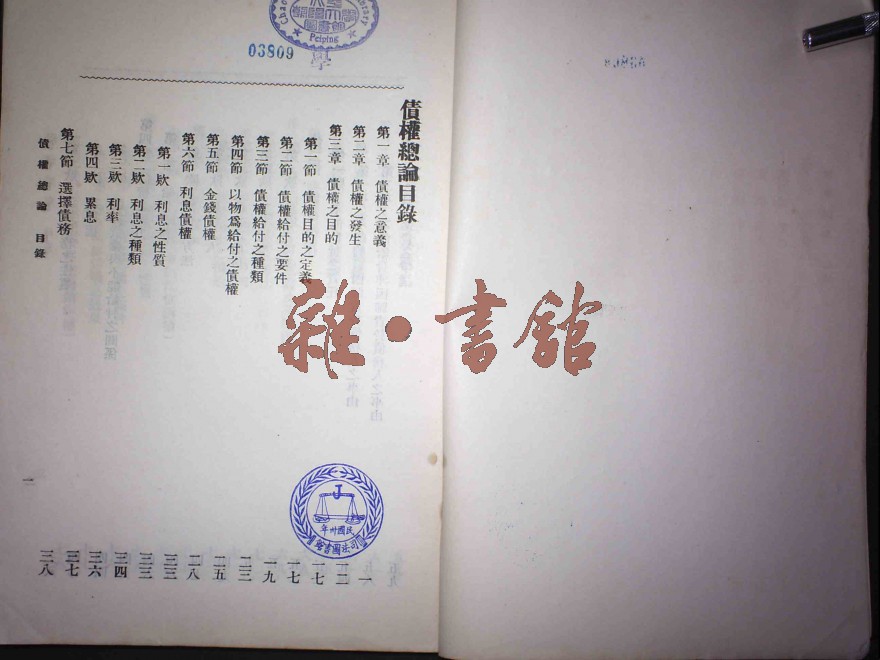 Peiping
03809
債權總論目錄
第一章 債權之意義 一
第二章 債權之發生 一二
第三章 債權之目的 一七
第一節 債權目的之定義 一七
第二節 債權給付之要件 一九
第三節 債權給付之種類 二三
第四節 以物爲給付之債權 二五
第五節 金錢債權 二八
第六節 利息債權 三三
第一欵 利息之性質 三三
第二欵 利息之種類 三四
第三欵 利率 三六
第四欵 累息 三七
第七節 選擇債務 三八
債權總論 目錄
一
民國卅年
雜·書館